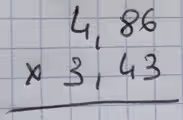 4,86
x 3,43